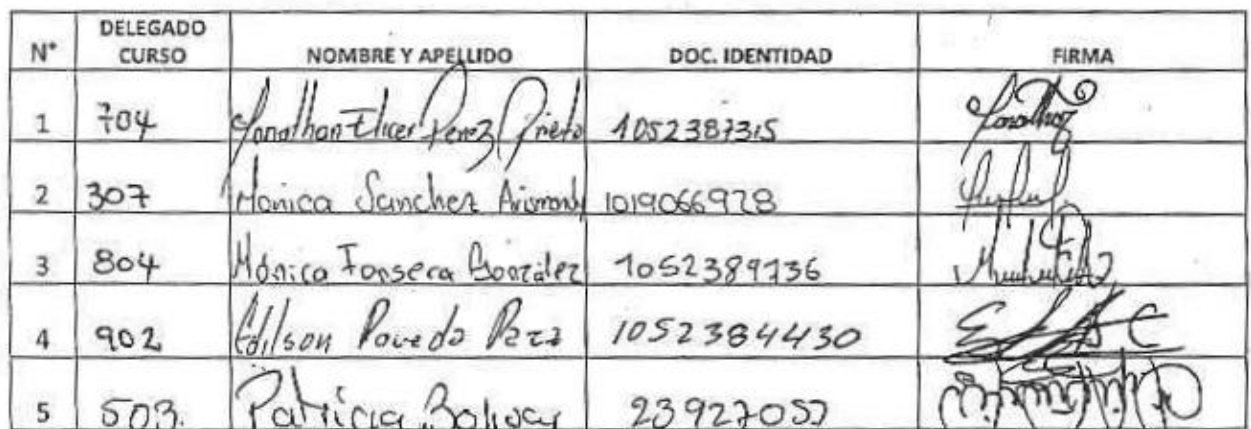 N° DELEGADO CURSO NOMBRE Y APELLIDO DOC. IDENTIDAD FIRMA
1 704 Jonathan Elicer Perez Prieto 1052387315 Jonathan
2 307 Monica Sanchez 1019066928
3 804 Mónica Fonseca González 1052389736
4 902 Edilson Poveda 1052384430
5 503. Patricia Bolivar